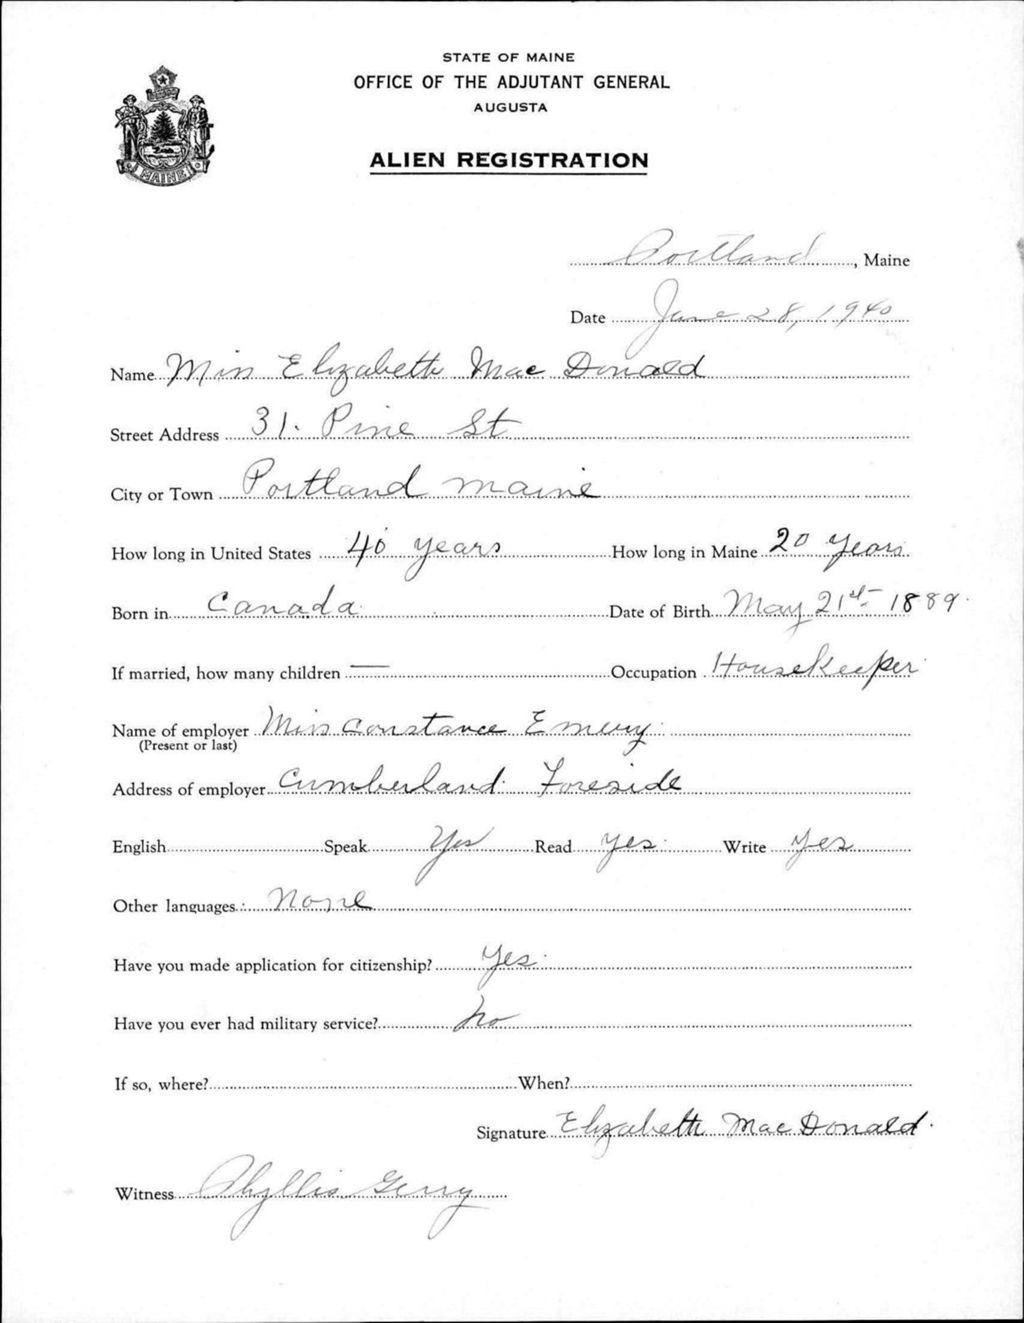 STATE OF MAINE
OFFICE OF THE ADJUTANT GENERAL
AUGUSTA
ALIEN REGISTRATION
MAINE
Portland, Maine
Date June 28, 1940
Name Miss Elizabeth Mac Donald
Street Address 31. Pine St
City or Town Portland Maine
How long in United States 40 years How long in Maine 20 years
Born in Canada Date of Birth May 21st 1889
If married, how many children — Occupation Housekeeper
Name of employer Miss Constance Emery
(Present or last)
Address of employer Cumberland Foreside
English Speak Yes Read yes Write yes
Other languages None
Have you made application for citizenship? Yes
Have you ever had military service? no
If so, where? When?
Signature Elizabeth Mac Donald.
Witness Phyllis Gerry